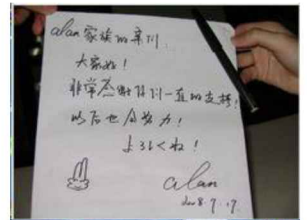 alan家族的亲们
大家好！
非常感谢你们一直的支持！
以后也会努力！
よろしくね！
alan
2008.9.17.